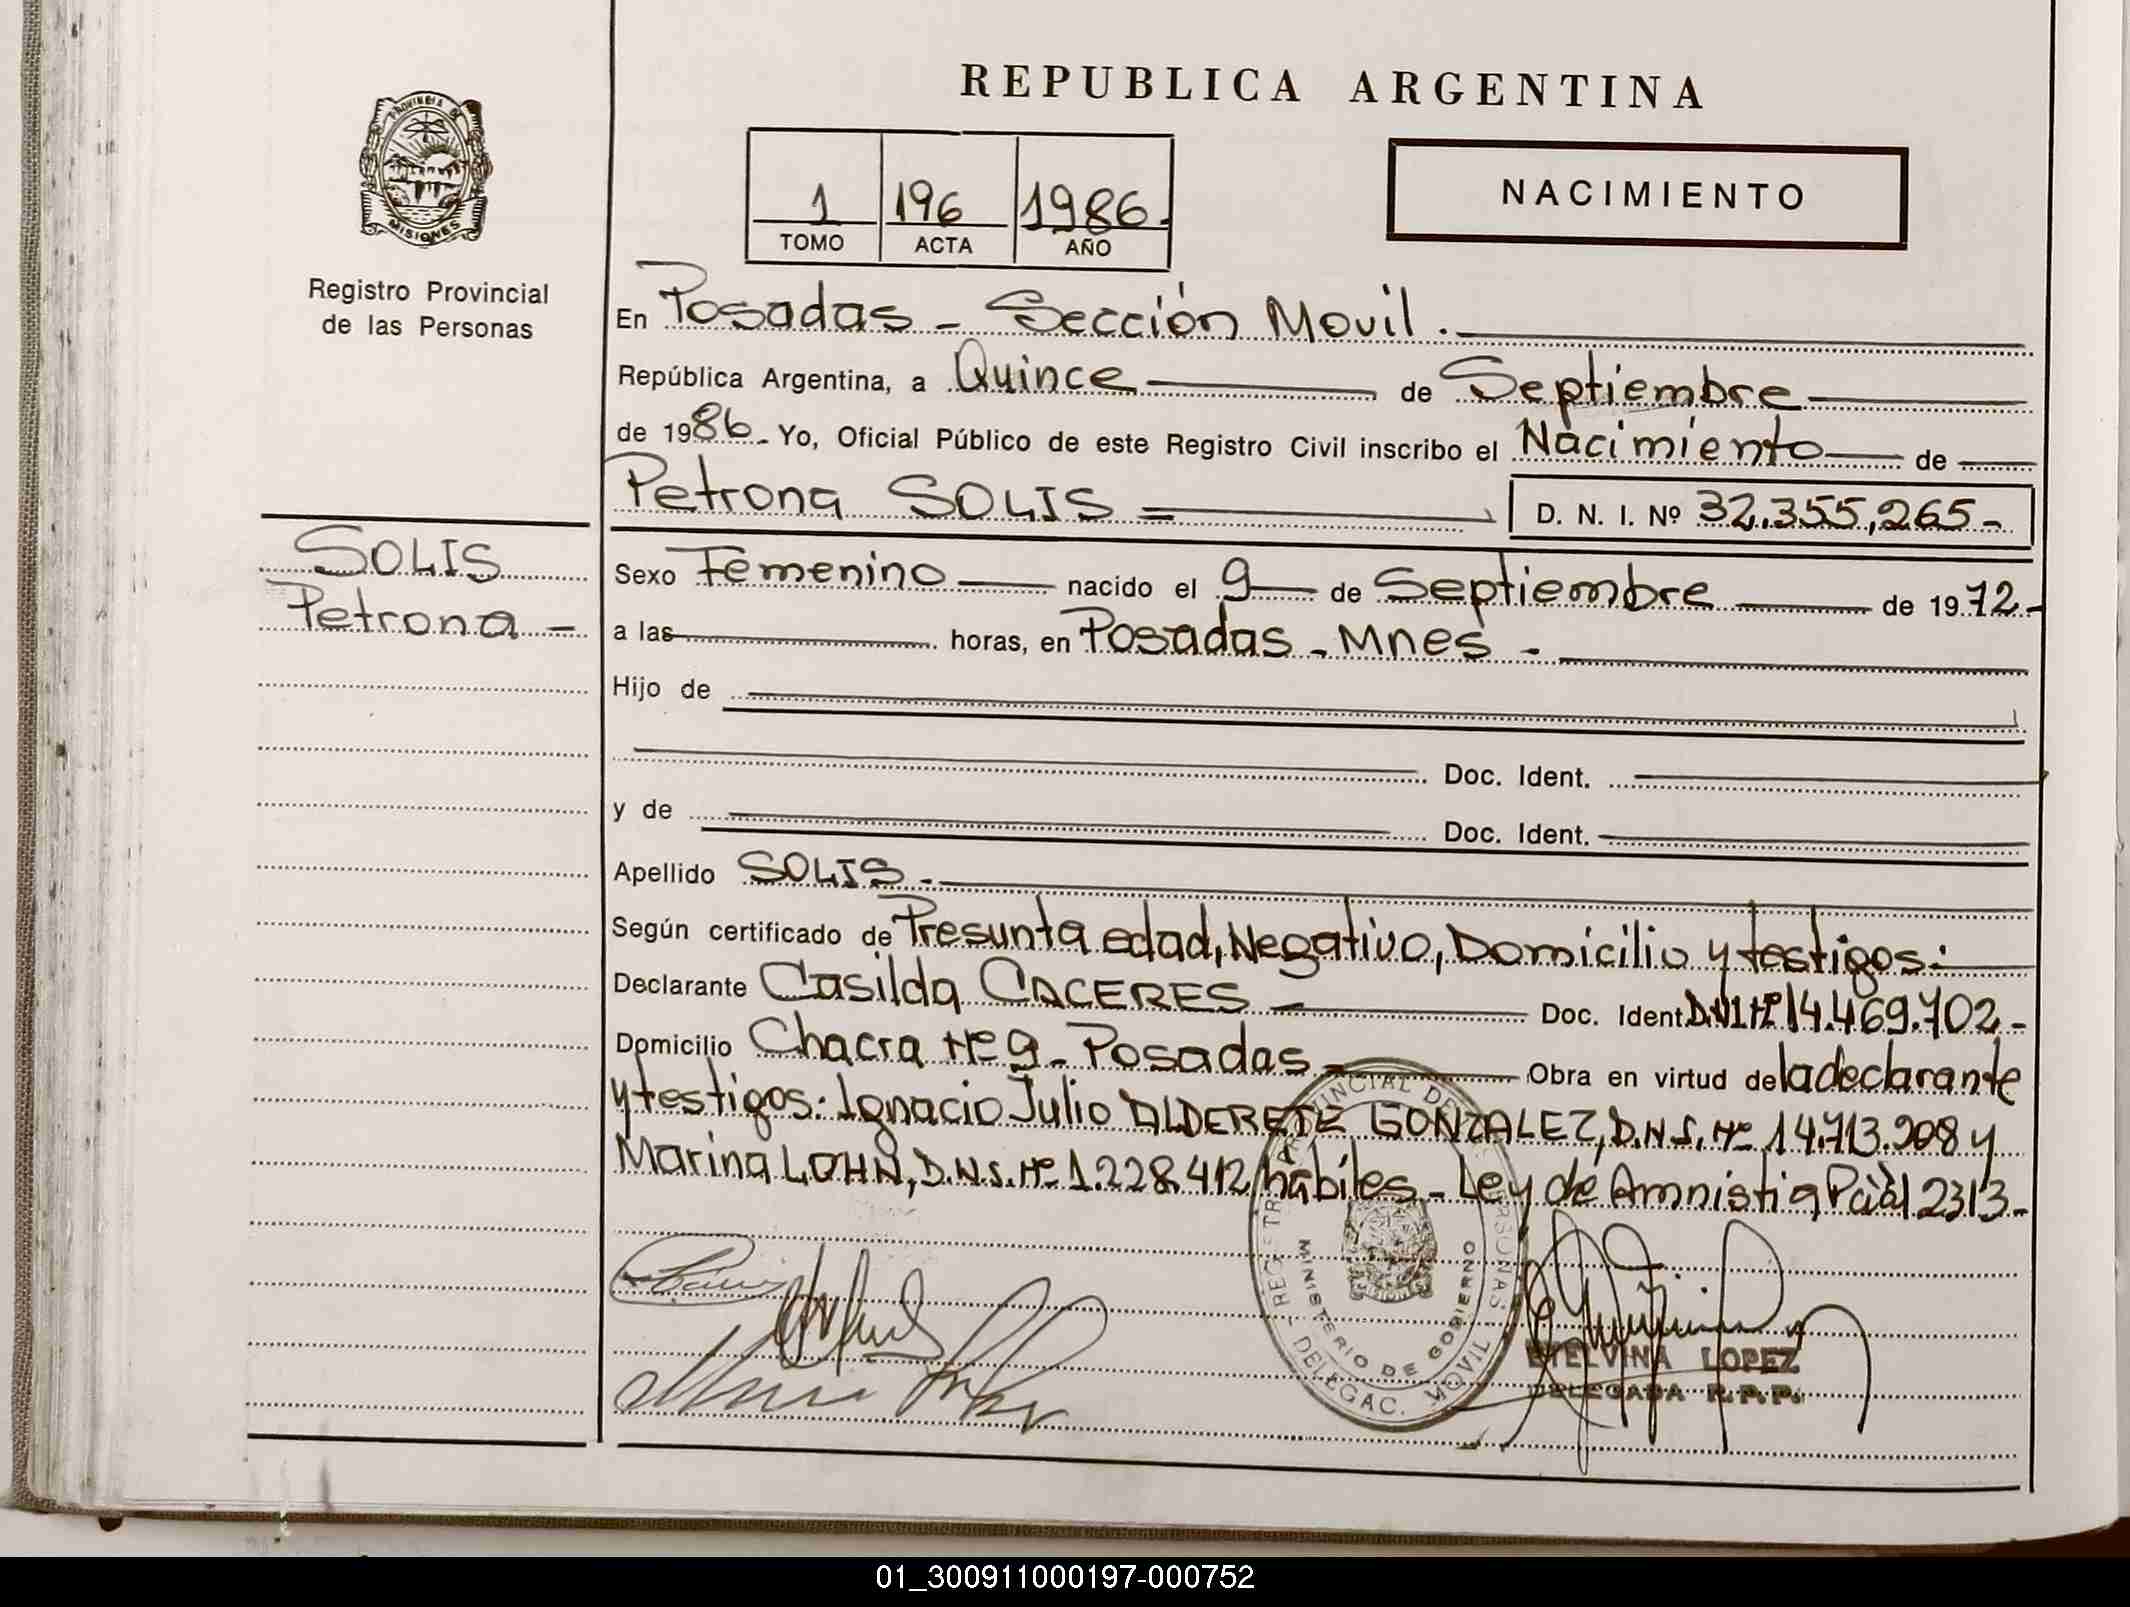 REPUBLICA ARGENTINA
PROVINCIA DE
MISIONES
Registro Provincial
de las Personas
1 196 1986.
TOMO ACTA AÑO
NACIMIENTO
En Posadas - Sección Movil.
República Argentina, a Quince de Septiembre
de 1986. Yo, Oficial Público de este Registro Civil inscribo el Nacimiento de
Petrona SOLIS = D. N. I. Nº 32.355,265-
SOLIS
Petrona -
Sexo Femenino nacido el 9 de Septiembre de 1972-
a las horas, en Posadas - Mnes -
Hijo de
Doc. Ident.
y de Doc. Ident.
Apellido SOLIS.
Según certificado de Presunta edad, Negativo, Domicilio y testigos:
Declarante Casilda CACERES - Doc. Ident. D.N.I. Nº 14.469.702-
Domicilio Chacra Nº 9 - Posadas - Obra en virtud de la declarante
y testigos: Ignacio Julio ALDERETE GONZALEZ, D.N.I. Nº 14.713.908 y
Marina LOHN, D.N.I. Nº 1.228.412 hábiles - Ley de Amnistia Pcial 2313-
REGISTRO PROVINCIAL DE LAS PERSONAS
MINISTERIO DE GOBIERNO
DELEGAC. MOVIL
ETELVINA LOPEZ
DELEGADA R.P.P.
01_300911000197-000752